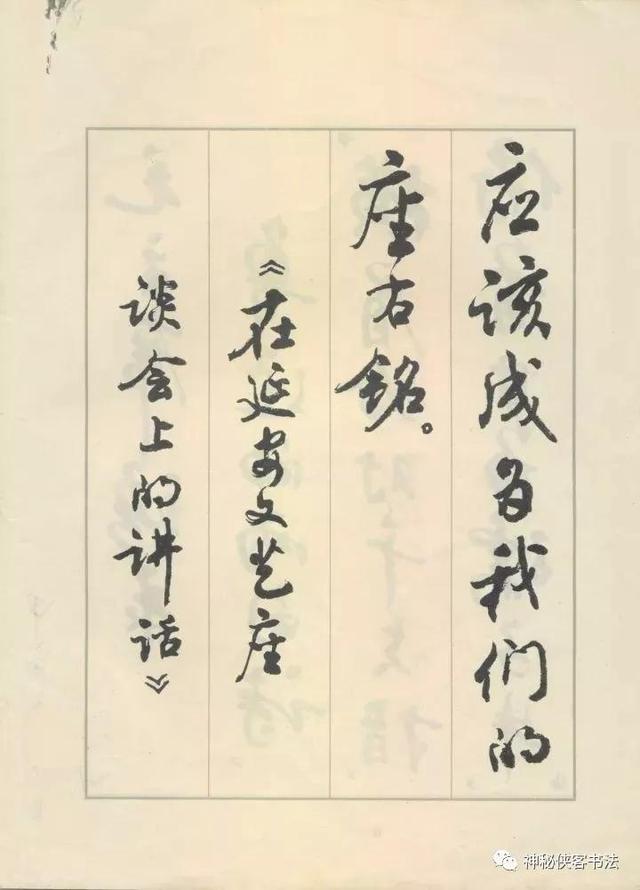 应该成为我们的
座右铭。
《在延安文艺座
谈会上的讲话》
神秘侠客书法